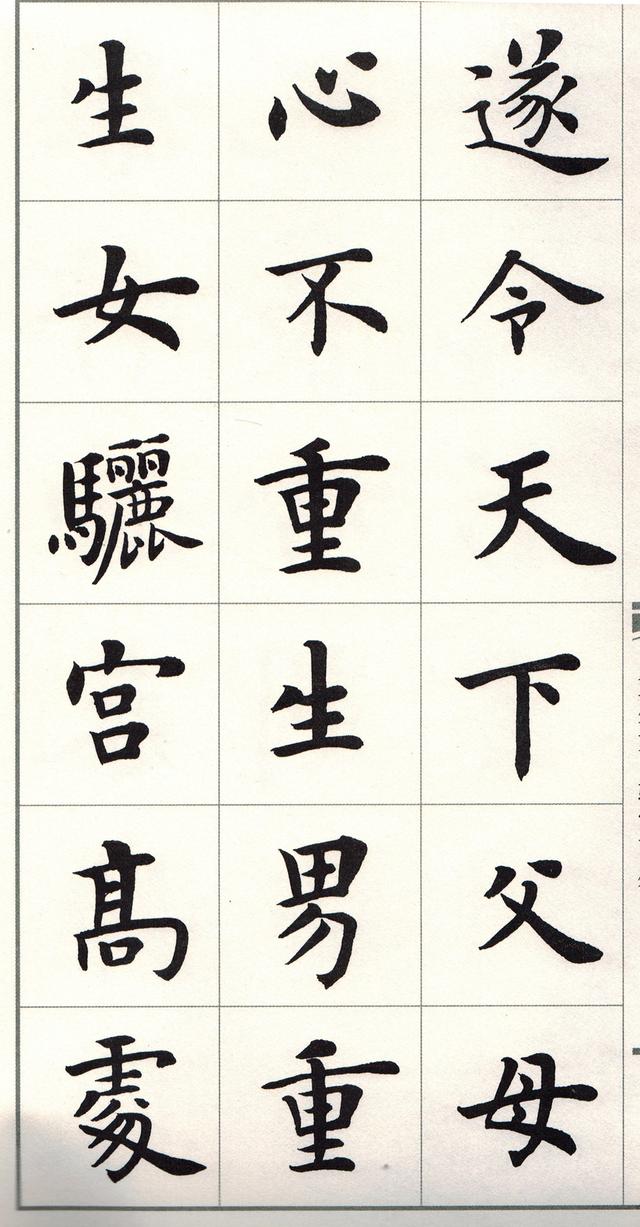 遂令天下父母
心不重生男重
生女驪宮髙處